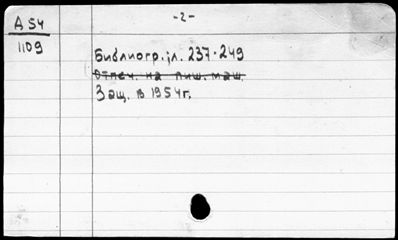 -2-
А 54
1109
Библиогр.: л. 237-249
Отпеч. на пиш. маш.
Защ. в 1954г.